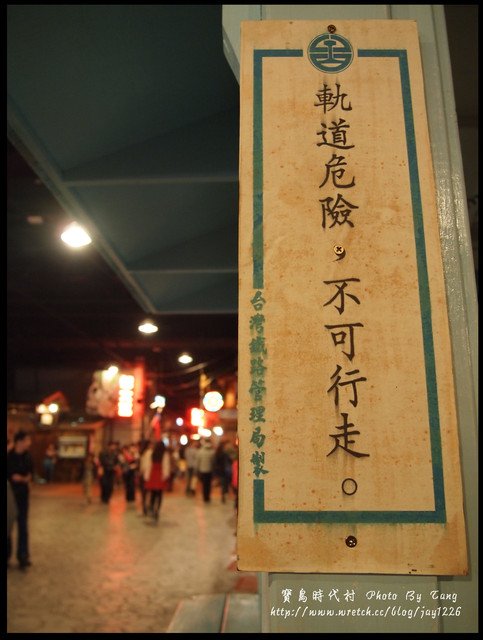 軌道危險，不可行走。
台灣鐵路管理局製
寶島時代村 Photo By Tang
http://www.wretch.cc/blog/jay1226